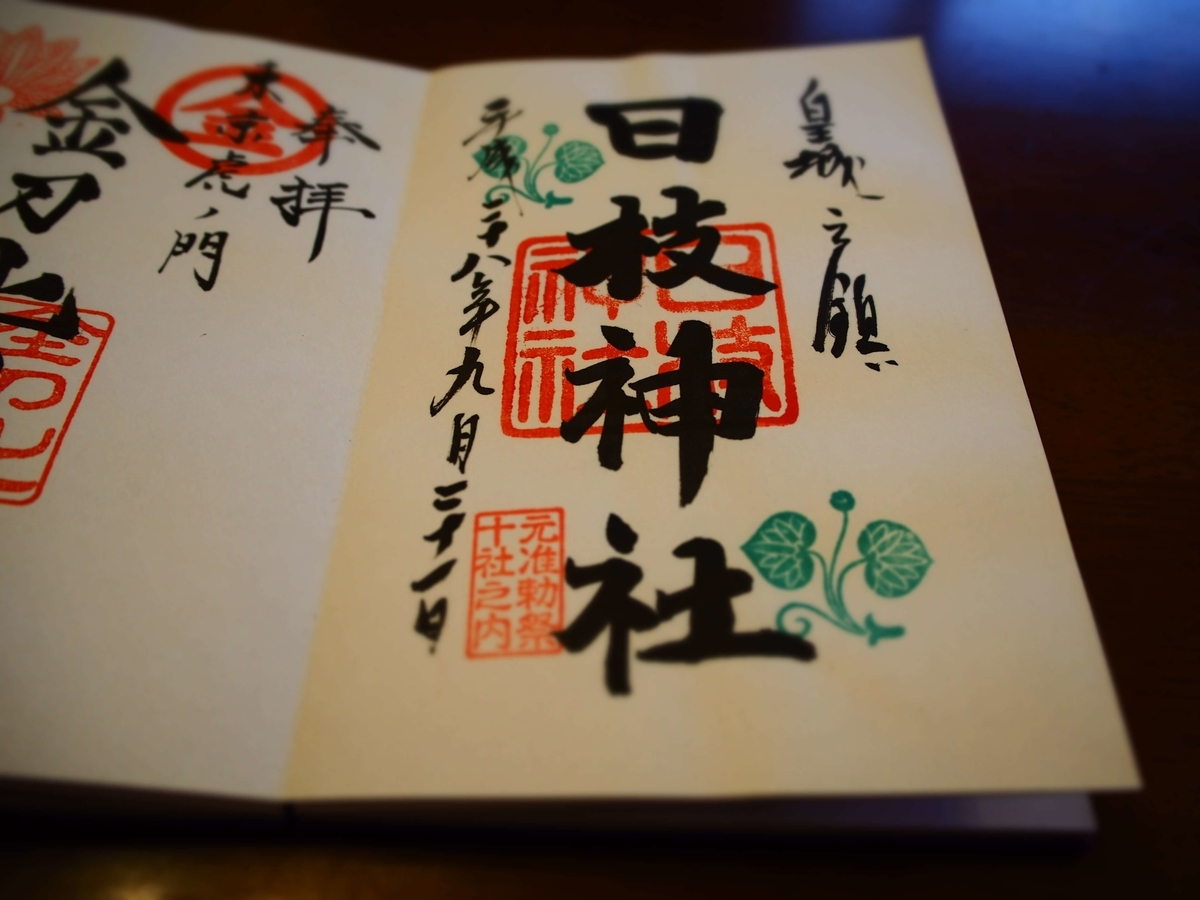 皇城之鎮
日枝神社
日枝
神社
平成二十八年九月二十一日
元准勅祭
十社之内
奉拝
金
東京虎ノ門
金刀比
金刀